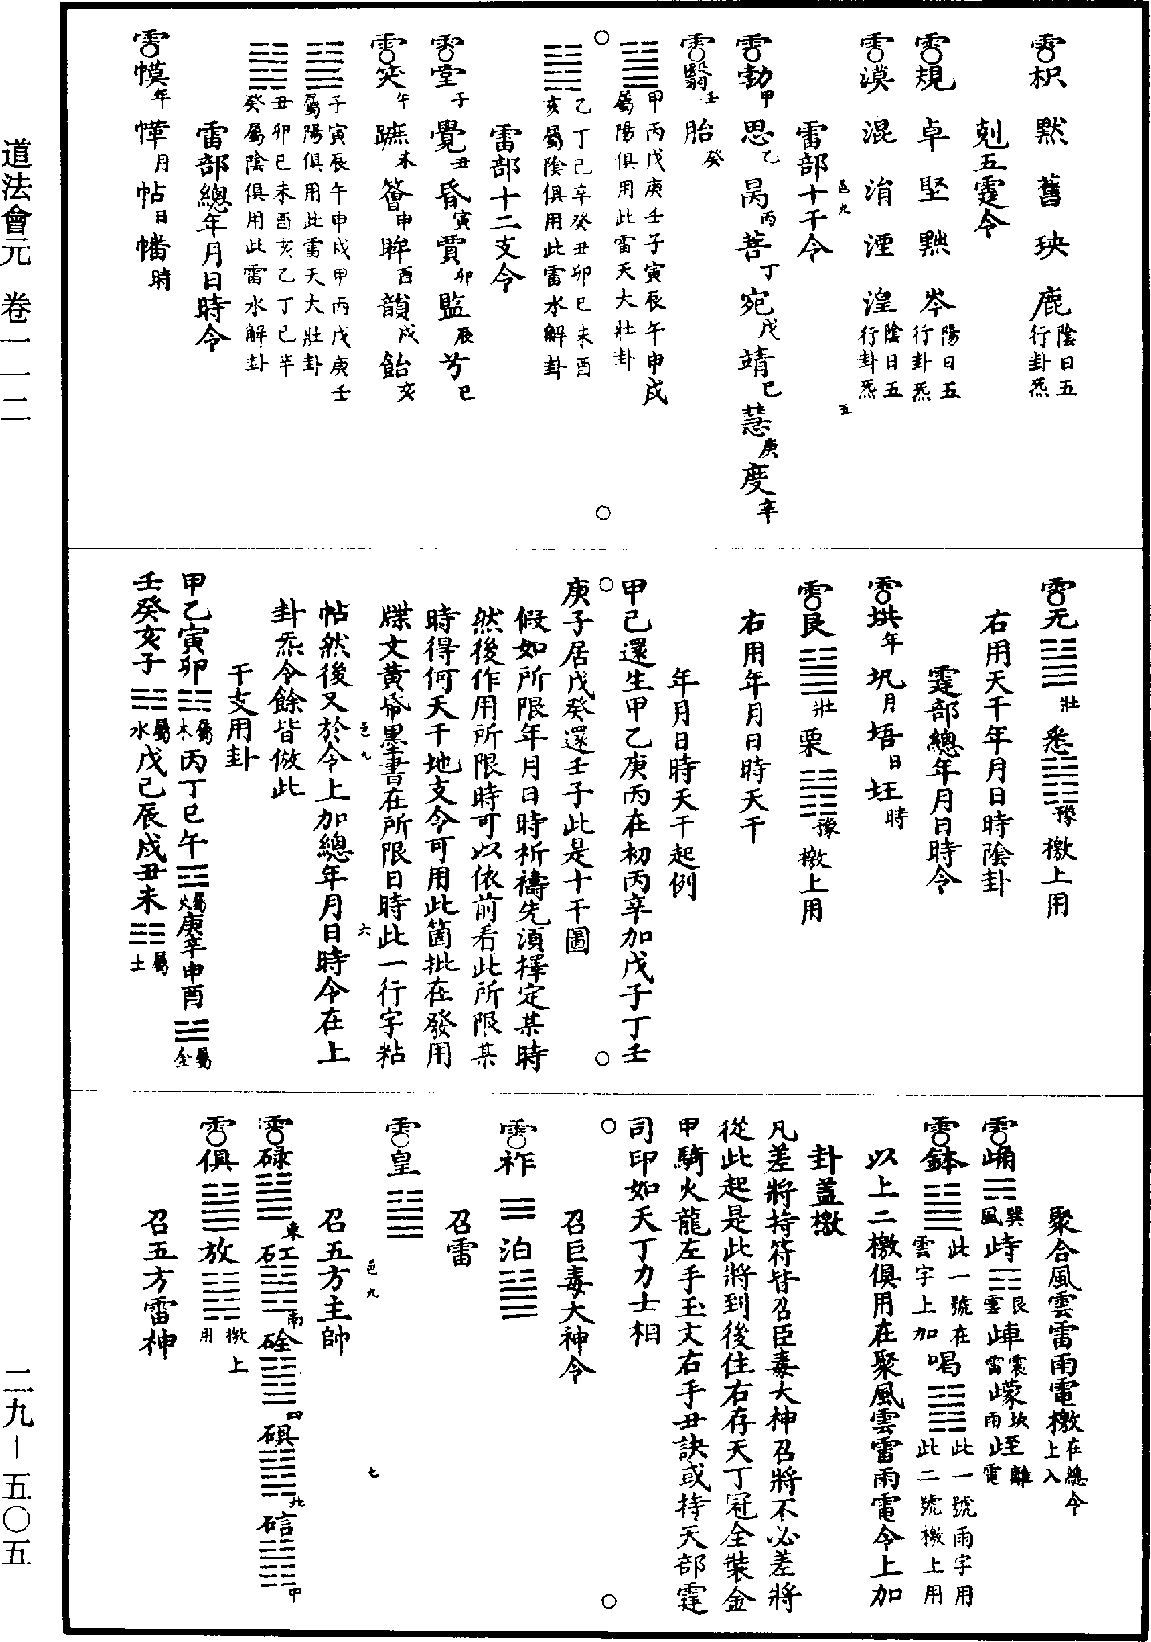 道法會元　卷一一二
二九—五〇五
枳默舊殃鹿陰日五行卦炁
剋五霆令
規卓堅黙岑陽日五行卦炁
漠混涓湮湟陰日五行卦炁
雷部十干令
勎甲思乙咼丙菩丁宛戊靖己慧庚度辛
翳壬胎癸
甲丙戊庚壬子寅辰午申戌屬陽俱用此雷天大壯卦
乙丁己辛癸丑卯巳未酉亥屬陰俱用此雷水解卦
雷部十二支令
堂子覺丑昏寅賈卯監辰芳巳
突午蹠未簪申眸酉韻戌飴亥
子寅辰午申戌甲丙戊庚壬屬陽俱用此雷天大壯卦
丑卯巳未酉亥乙丁己辛癸屬陰俱用此雷水解卦
雷部總年月日時令
幙年幃月帖日幡時
元壯悉豫檄上用
右用天干年月日時陰卦
霆部總年月日時令
垬年圦月捂日玨時
艮壯栗豫檄上用
右用年月日時天干
年月日時天干起例
甲己還生甲乙庚丙在初丙辛加戊子丁壬
庚子居戊癸還壬子此是十干圖
假如所限年月日時祈禱先須擇定某時
然後作用所限時可以依前看此所限某
時得何天干地支令可用此箇批在發用
牒文黄帋黑書在所限日時此一行字粘
帖然後又於令上加總年月日時令在上
卦炁令餘皆倣此
干支用卦
甲乙寅卯屬木丙丁巳午屬火庚辛申酉屬金
壬癸亥子屬水戊己辰戌丑未屬土
聚合風雲雷雨電檄在總令上入
峬巽風峙艮雲㟇震雷㠓坎雨峌離電
鉢此一號在雲字上加喝此一號雨字用此二號檄上用
以上二檄俱用在聚風雲雷雨電令上加
卦蓋檄
凡差將持符皆召臣毒大神召將不必差將
從此起是此將到後住右存天丁冠全裝金
甲騎火龍左手玉文右手丑訣或持天部霆
司印如天丁力士相
召巨毒大神令
祚泊
召雷
皇
召五方主帥
碌東矼南硂西碩北硈中
俱放檄上用
召五方雷神